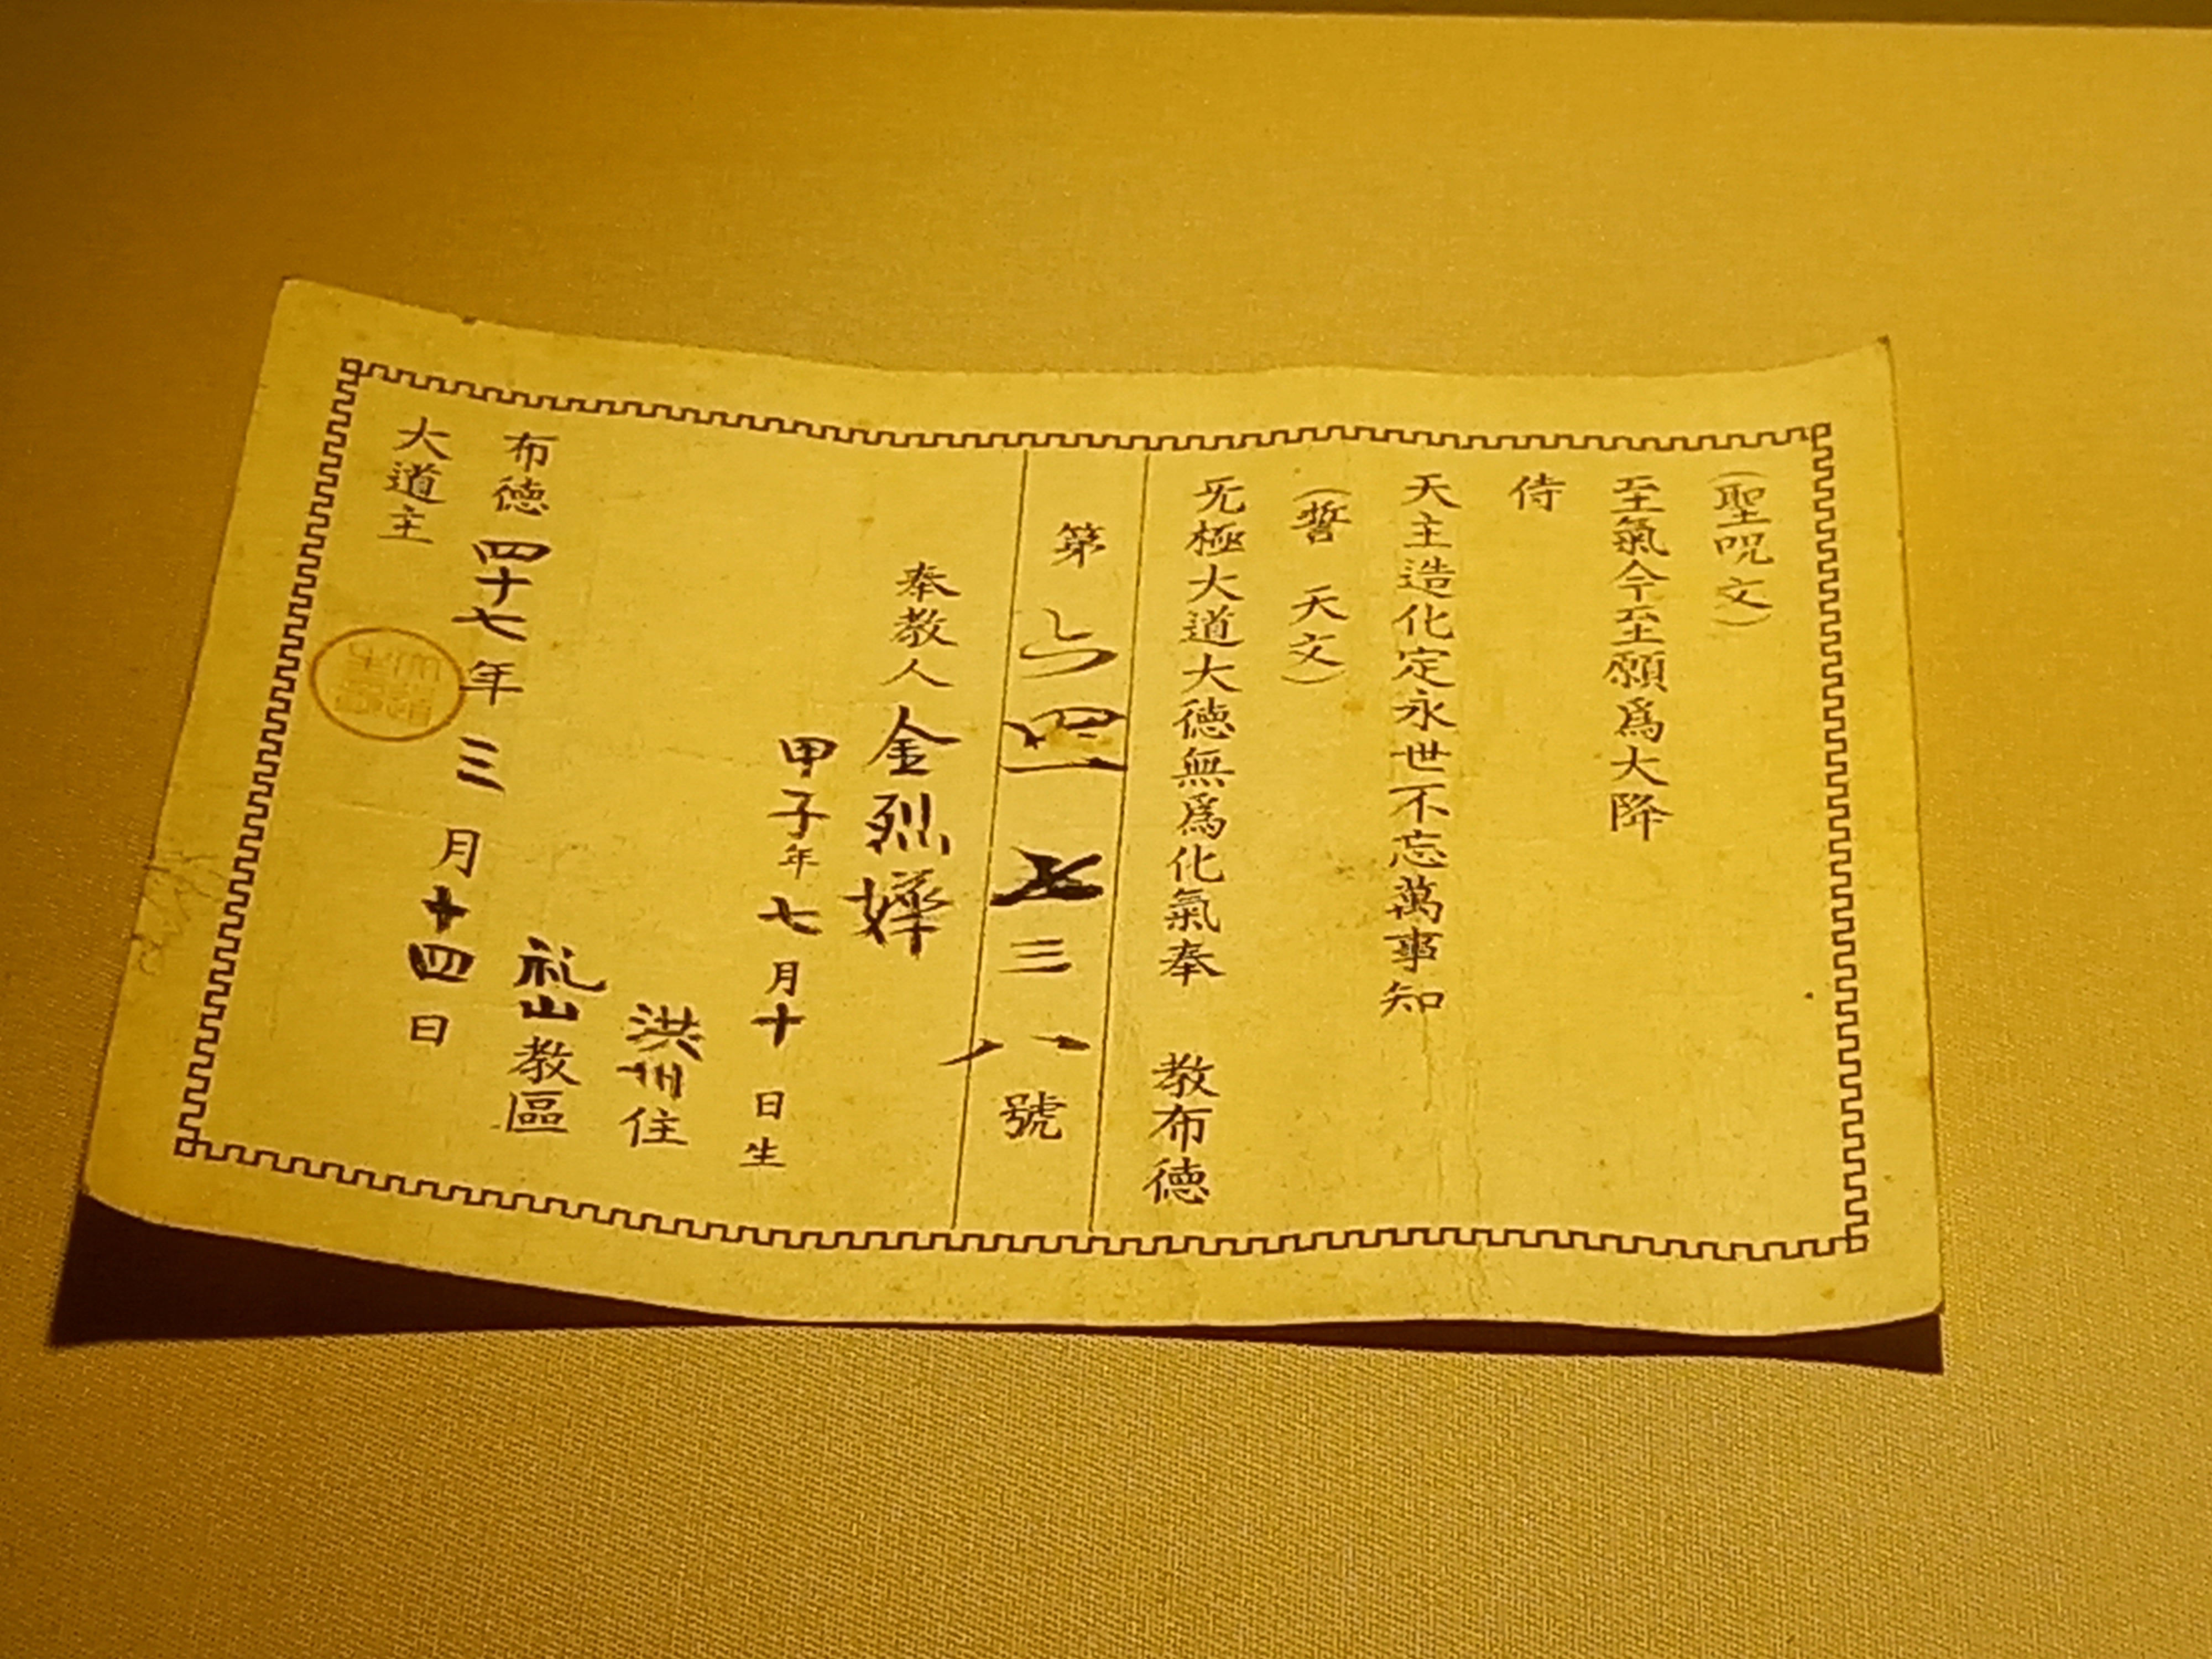 （聖呪文）
至氣今至願爲大降
侍
天主造化定永世不忘萬事知
（誓天文）
旡極大道大德無爲化氣奉 教布德
第六四七三八號
奉教人金烈嬅
甲子年七月十日生
洪州住
礼山教區
布德四十七年三月十四日
大道主